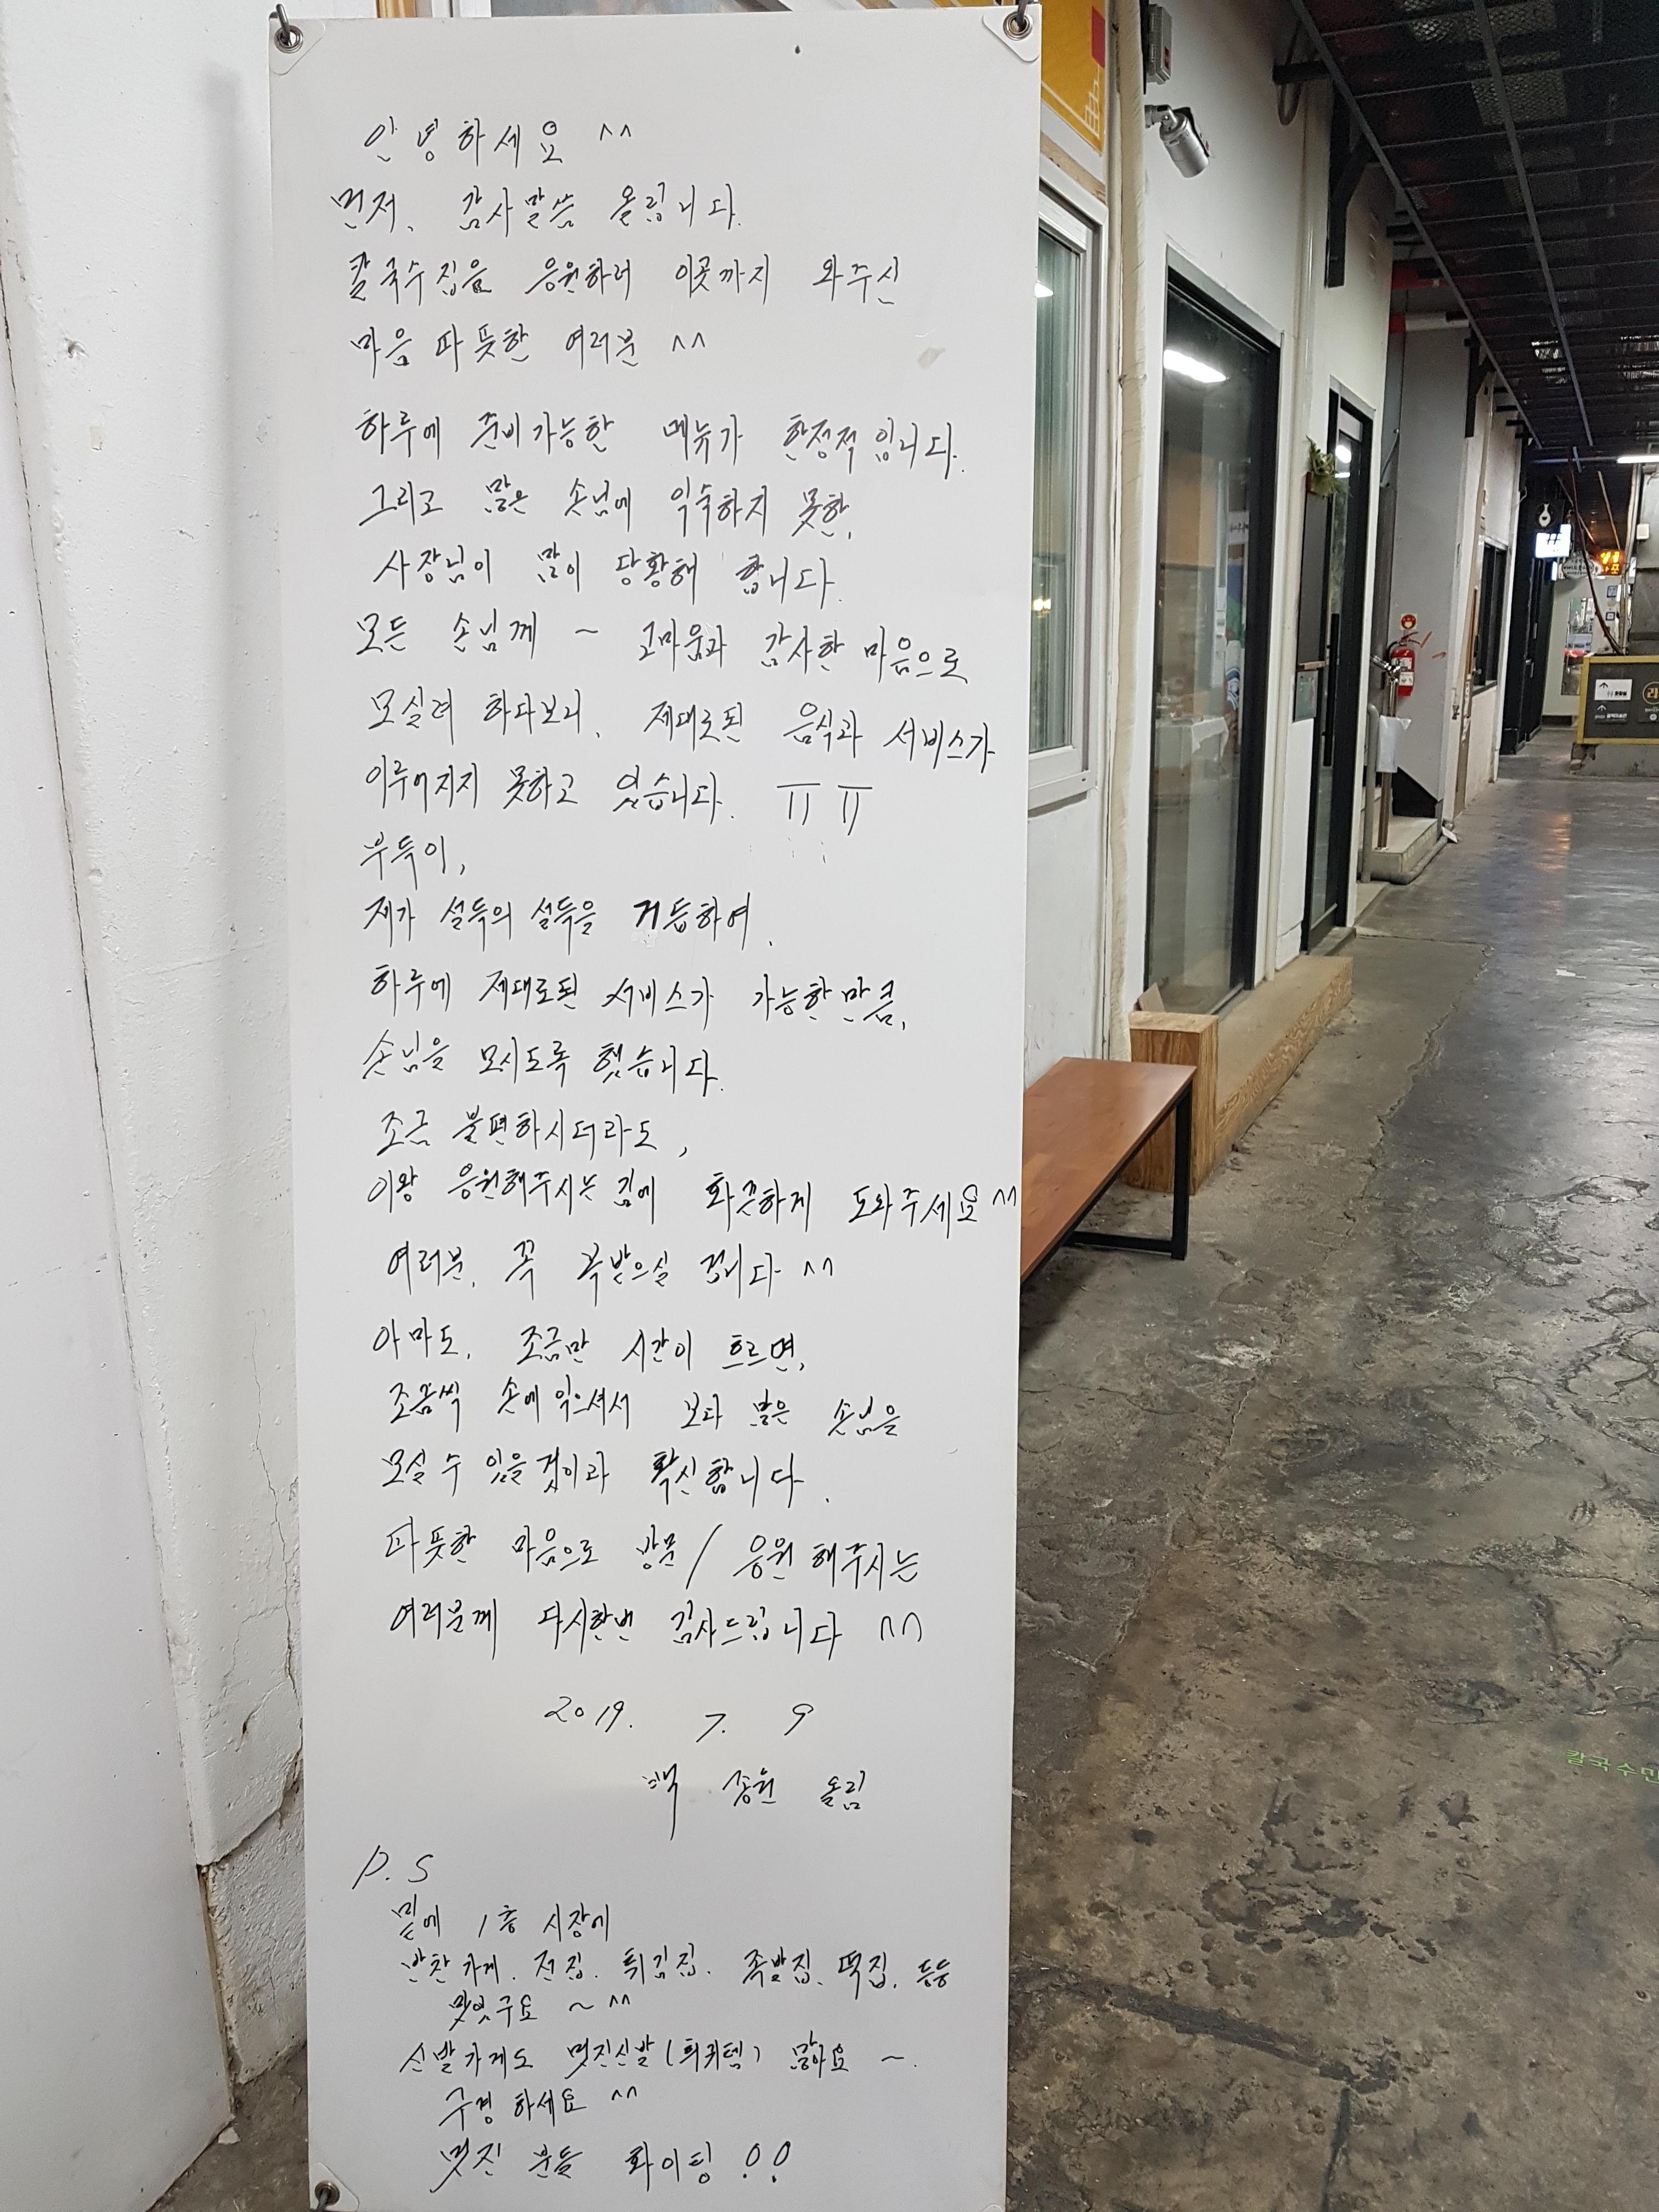 안녕하세요 ^^
먼저, 감사말씀 올립니다.
칼국수집을 응원하러 이곳까지 와주신
마음 따뜻한 여러분 ^^
하루에 준비가능한 메뉴가 한정적입니다.
그리고 많은 손님에 익숙하지 못한,
사장님이 많이 당황해 합니다.
모든 손님께 ~ 고마움과 감사한 마음으로
모실려 하다보니, 제대로된 음식과 서비스가
이루어지지 못하고 있습니다. ㅠㅠ
부득이,
제가 설득의 설득을 거듭하여,
하루에 제대로된 서비스가 가능한만큼,
손님을 모시도록 했습니다.
조금 불편하시더라도,
이왕 응원해주시는김에 화끈하게 도와주세요^^
여러분, 꼭 복받으실 겁니다 ^^
아마도, 조금만 시간이 흐르면,
조금씩 손에익으셔서 보다 많은 손님을
모실수 있을것이라 확신합니다.
따뜻한 마음으로 방문/응원해주시는
여러분께 다시한번 감사드립니다 ^^
2019. 7. 9
백종원 올림
P.S
밑에 1층 시장에
반찬가게. 전집. 튀김집. 족발집. 떡집. 등등
맛있구요 ~ ^^
신발가게도 멋진신발(희귀템) 많아요 ~.
구경하세요 ^^
멋진 분들 화이팅!!
칼국수만